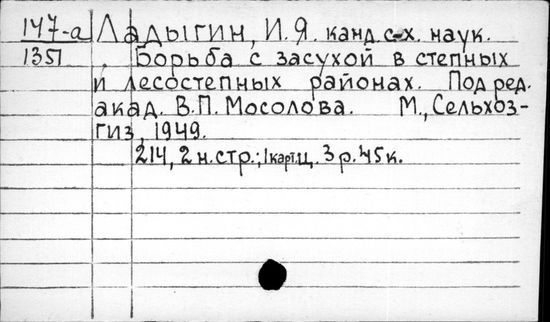 147-а Ладыгин, И.Я. канд. с-х. наук.
1351 Борьба с засухой в степных
и лесостепных районах. Под ред.
акад. В.П. Мосолова. М., Сельхоз-
гиз, 1949.
214, 2 н.стр.; 1 карт.ц. 3 р. 45 к.